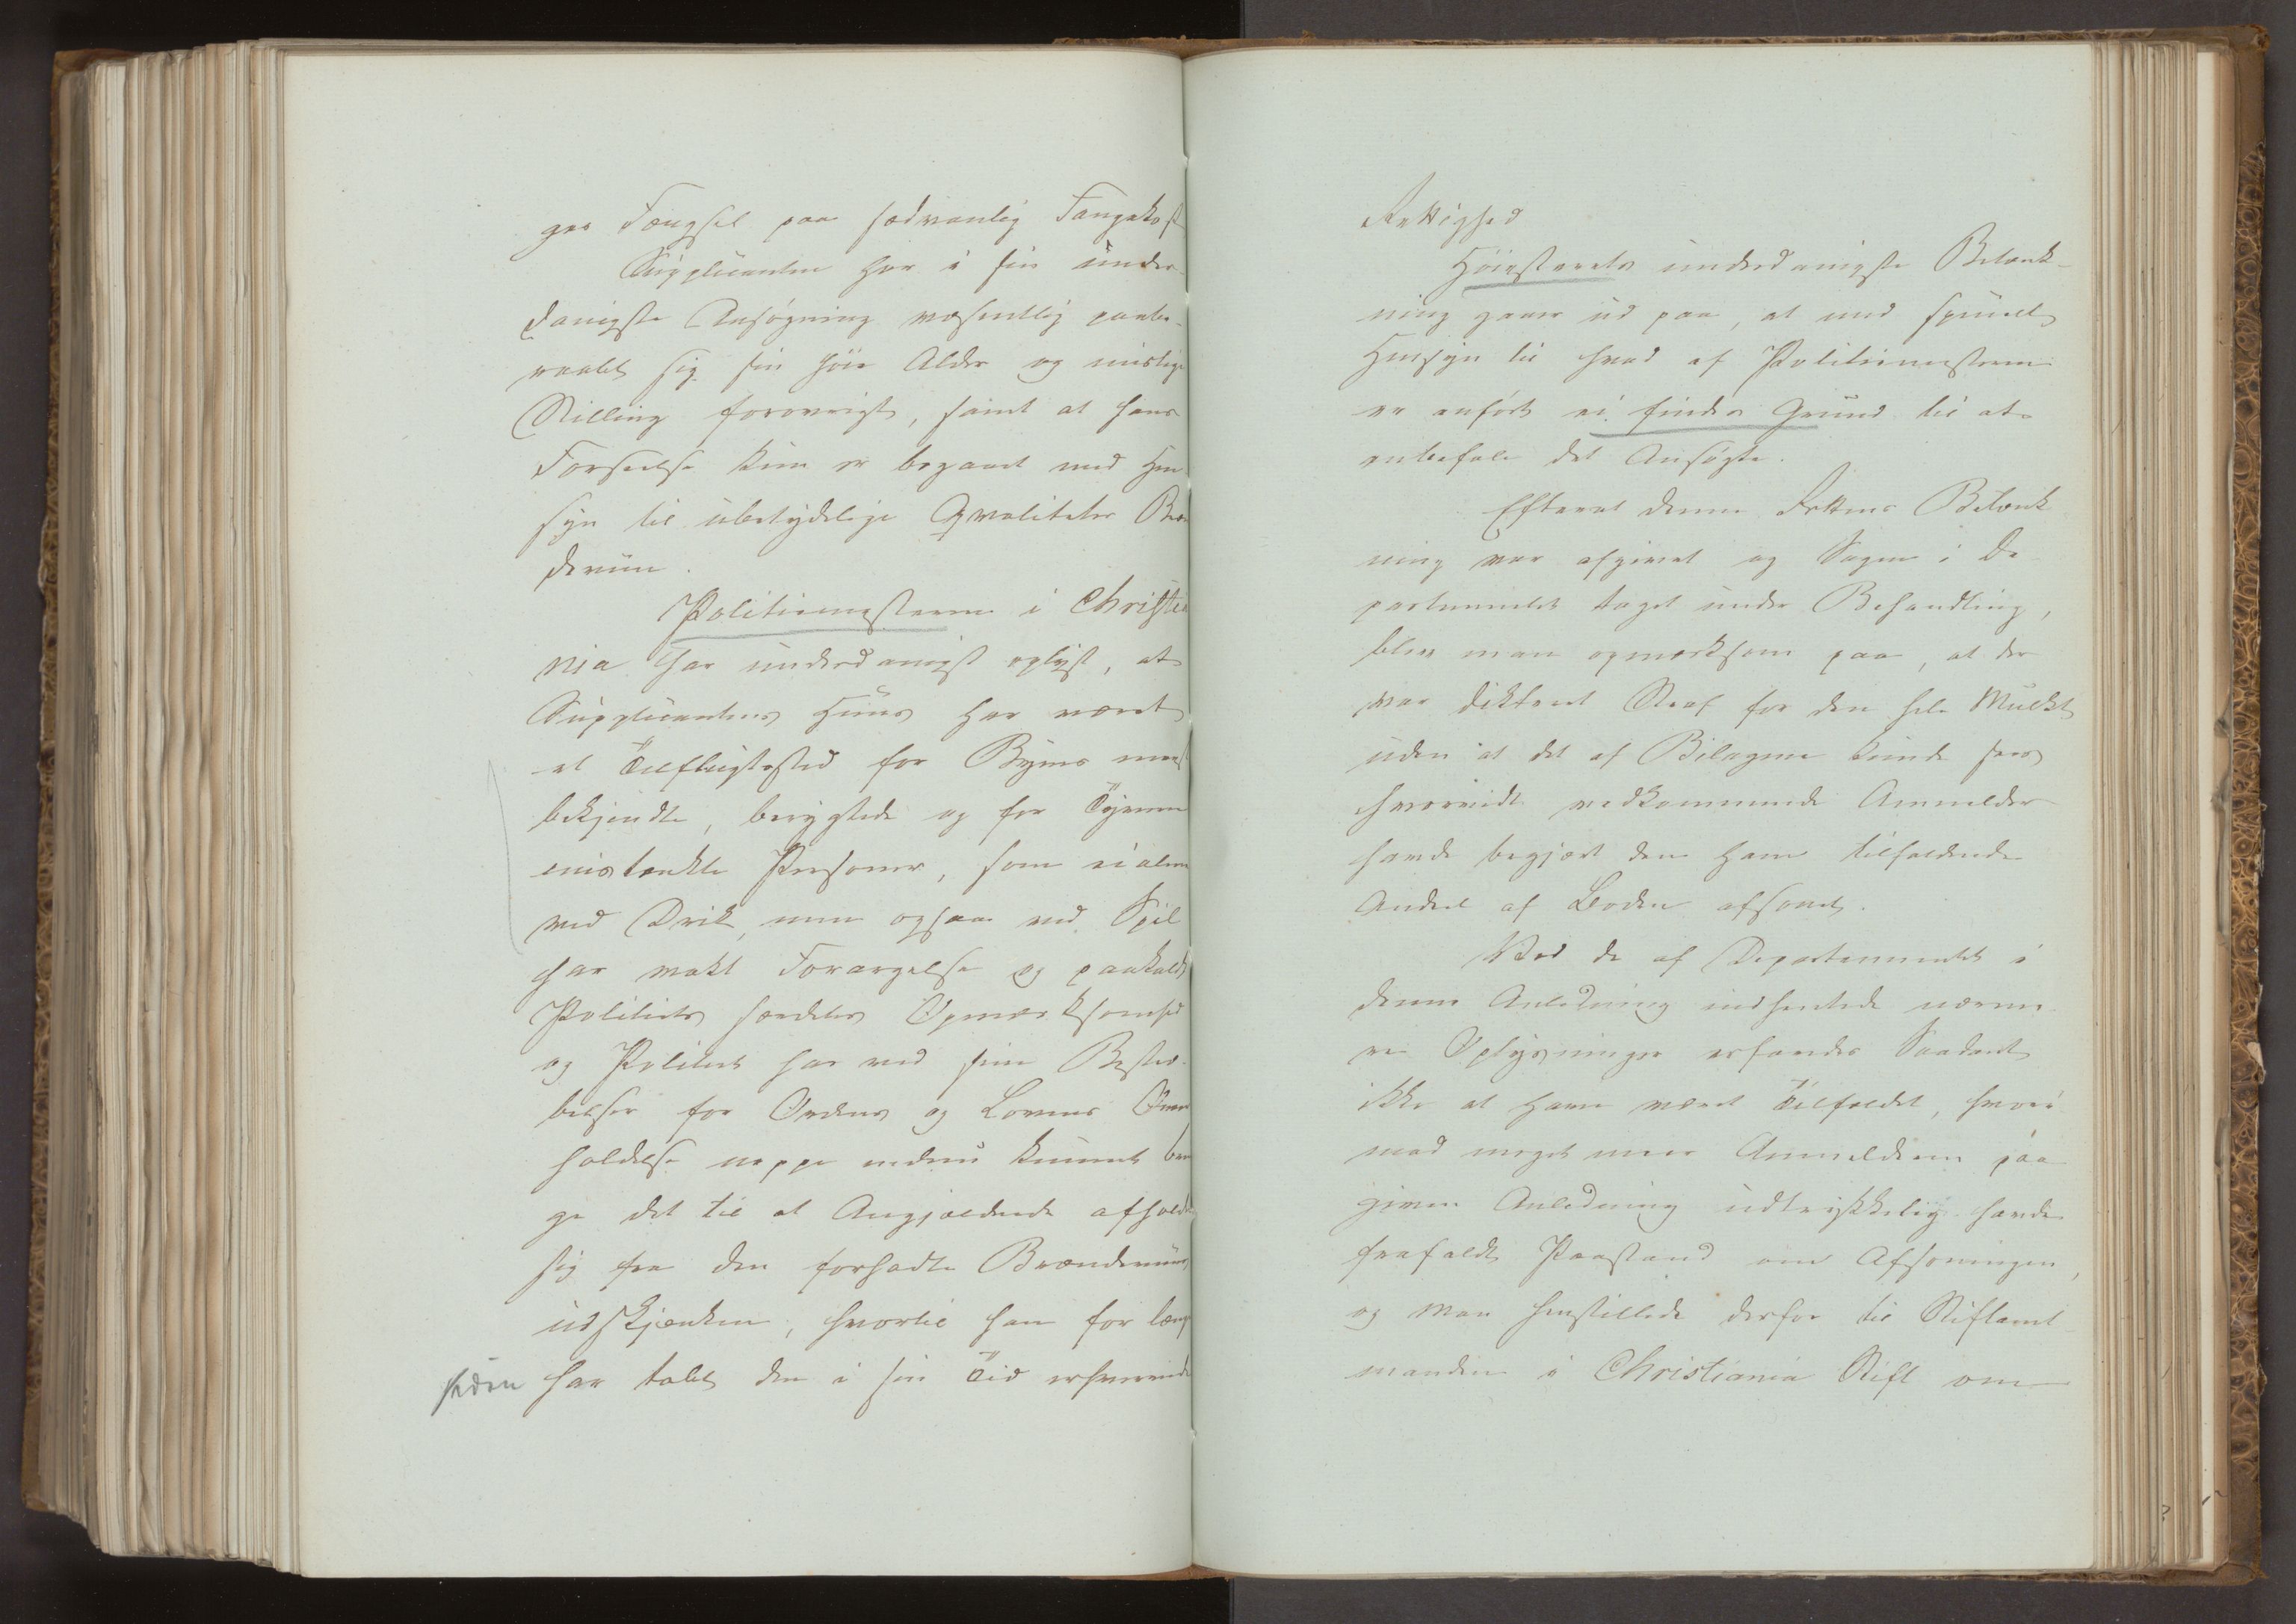 ges Fængsel paa sædvanlig Fangekost
Supplicanten har i sin under-
danigste Ansøgning væsentlig paabe-
raabt sig sin høie Alder og mislige
Stilling forøvrigt, samt at hans
Forseelse kun er begaaet med Hen
syn til ubetydelige Qvaliteter Bræn
deviin.
Politiemesteren i Christia
nia har underdanigst oplyst, at
Supplicantens Huus har været
et Tilflugtssted for Byens meest
bekjendte, berygtede og for Tyverie
mistænkte Personer, som ei alene
ved Drik, men ogsaa ved Spil
har vakt Forargelse og paakaldt
Politiets særdeles Opmærksomhed
og Politiet har ved sine Bestræ-
belser for Ordens og Lovens Over
holdelse neppe endnu kunnet brin
ge det til at Angjældende afholdt
sig fra den forhadte Brændeviins
udskjænken, hvortil han for længe
siden har tabt den i sin Tid erhvervede
Rettighed
Høiesterets underdanigste Betænk-
ning gaaer ud paa, at med specielt
Hensyn til hvad af Politiemesteren
er anført ei findes Grund til at
anbefale det Ansøgte.
Efterat denne Rettens Betænk
ning var afgivet og Sagen i De
partementet taget under Behandling,
blev man opmærksom paa, at der
var dikteret Straf for den hele Mulkt
uden at det af Bilagene kunde sees
hvorvidt vedkommende Anmelder
havde begjært den ham tilfaldende
Andeel af Boden afsonet.
Ved de af Departementet i
denne Anledning indhentede nærme
re Oplysninger erfaredes Saadant
ikke at have været Tilfældet, hvori
mod meget meer Anmelderen paa
given Anledning udtrykkelig havde
frafaldt Paastand om Afsoningen,
og man henstillede derfor til Stiftamt
manden i Christiania Stift om